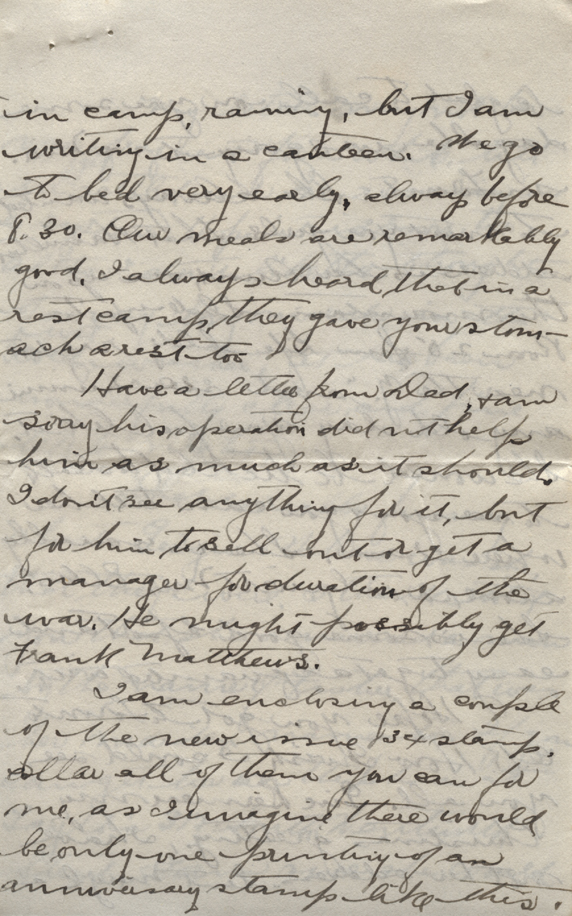 in camp, rainy, but I am
writing in a canteen. We go
to bed very early, always before
8.30. Our meals are remarkably
good. I always heard that in a
rest camp, they gave your stom-
ach a rest too
Have a letter from Dad, + am
sorry his operation did nt help
him as much as it should.
I don't see anything for it, but
for him to sell out or get a
manager for duration of the
war. He might possibly get
Frank Matthews.
I am enclosing a couple
of the new issue 3¢ stamp.
Collar all of them you can for
me, as I imagine there would
be only one printing of an
anniversary stamp like this.